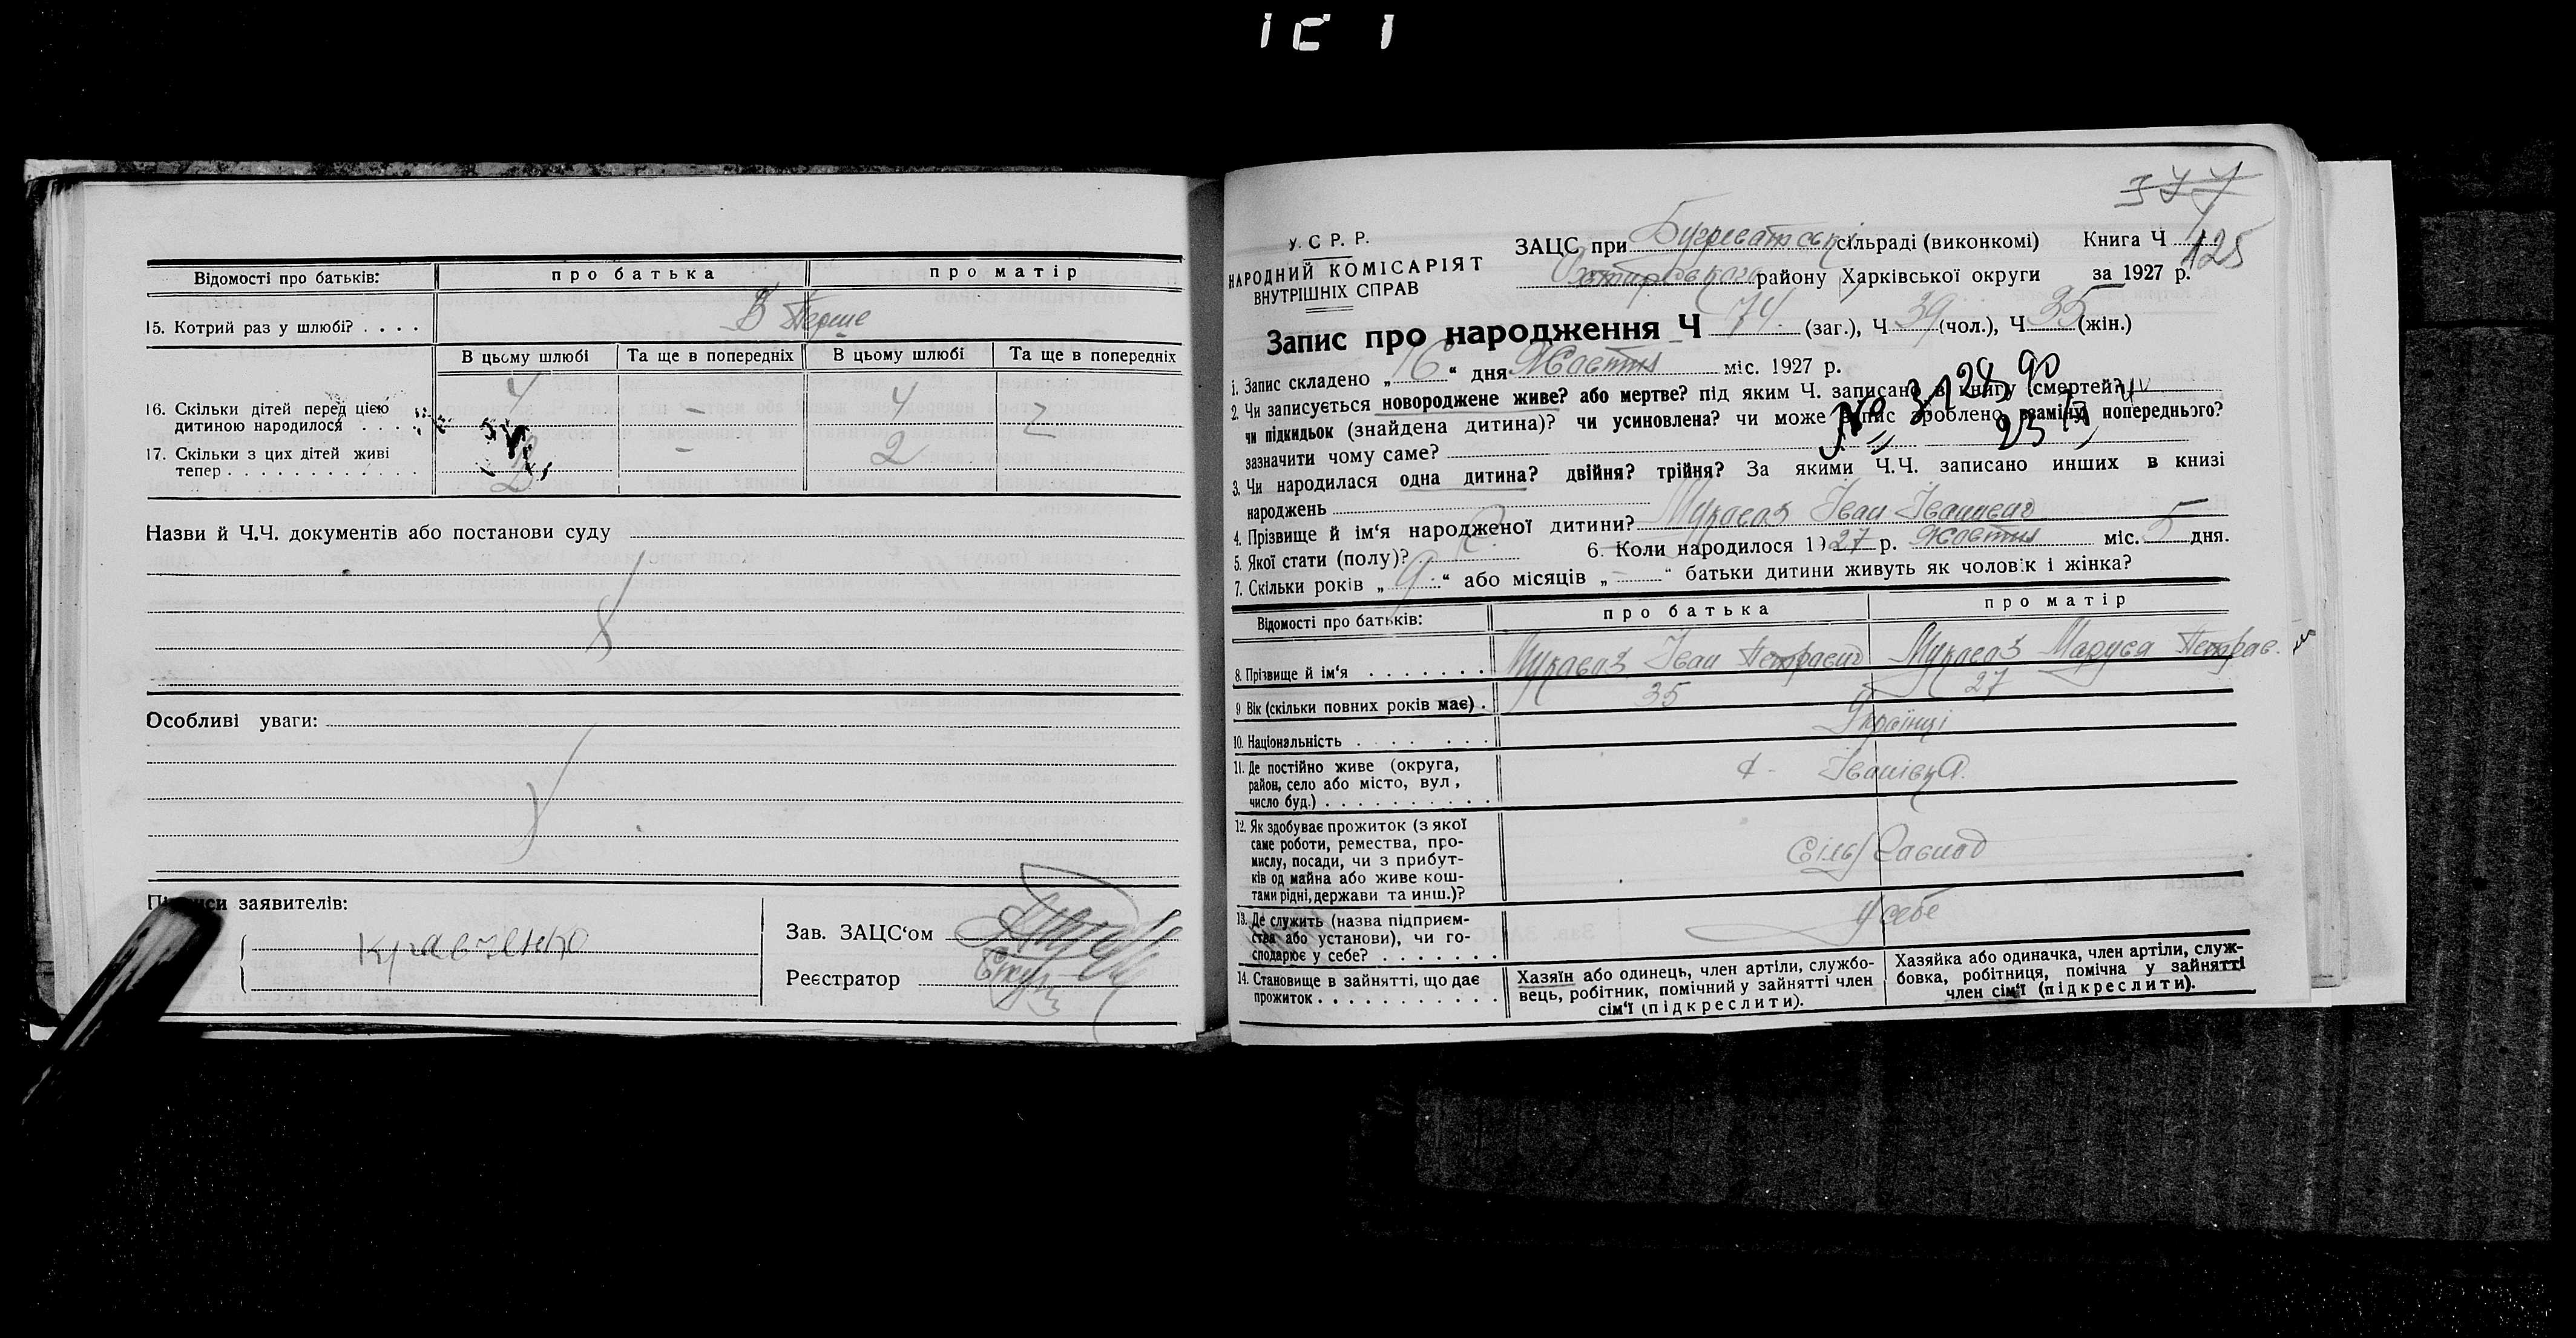 Відомості про батьків: про батька про матір
15. Котрий раз у шлюбі? . . . . В Перше
В цьому шлюбі Та ще в попередніх В цьому шлюбі Та ще в попередніх
16. Скільки дітей перед цією дитиною народилося . . . . 4 - 4
17. Скільки з цих дітей живі тепер . . . . . . . . . . . 2 - 2
Назви й Ч.Ч. документів або постанови суду
Особливі уваги:
Підписи заявителів:
Кравченко
Зав. ЗАЦС‘ом
Реєстратор
377
У. С. Р. Р.
НАРОДНИЙ КОМІСАРІЯТ
ВНУТРІШНІХ СПРАВ
ЗАЦС при Бугреватській сільраді (виконкомі) Книга Ч 1
Охтирського району Харківської округи за 1927 р.
125
Запис про народження Ч 74 (заг.), Ч 39 (чол.), Ч 35 (жін.)
1. Запис складено „16“ дня Жовтня міс. 1927 р.
2. Чи записується новороджене живе? або мертве? під яким Ч. записано в книгу смертей?
чи підкидьок (знайдена дитина)? чи усиновлена? чи може запис зроблено взаміну попереднього?
зазначити чому саме?
3. Чи народилася одна дитина? двійня? трійня? За якими Ч.Ч. записано инших в книзі
народжень
4. Прізвище й ім‘я народженої дитини? Мукаєлз Іван Іванович
5. Якої стати (полу)? Ч. 6. Коли народилося 1927 р. Жовтня міс. 5 дня.
7. Скільки років „9“ або місяців „-“ батьки дитини живуть як чоловік і жінка?
Відомості про батьків: про батька про матір
8. Прізвище й ім‘я . . . . . . . Іван Петрович Маруся Петрав.
9 Вік (скільки повних років має) . 35 27
10. Національність . . . . . . . Українці
11. Де постійно живе (округа,
район, село або місто, вул,
число буд.) . . . . . . . . . . с. Іванівка
12. Як здобуває прожиток (з якої
саме роботи, ремества, про-
мислу, посади, чи з прибут-
ків од майна або живе кош-
тами рідні, держави та инш.)? Сільгоспод
13. Де служить (назва підприєм-
ства або установи), чи го-
сподарює у себе? . . . . . . . У себе
14. Становище в зайнятті, що дає
прожиток . . . . . . . . . . .
Хазяїн або одинець, член артіли, службо-
вець, робітник, помічний у зайнятті член
сім‘ї (підкреслити).
Хазяйка або одиначка, член артіли, служ-
бовка, робітниця, помічна у зайнятті
член сім‘ї (підкреслити).